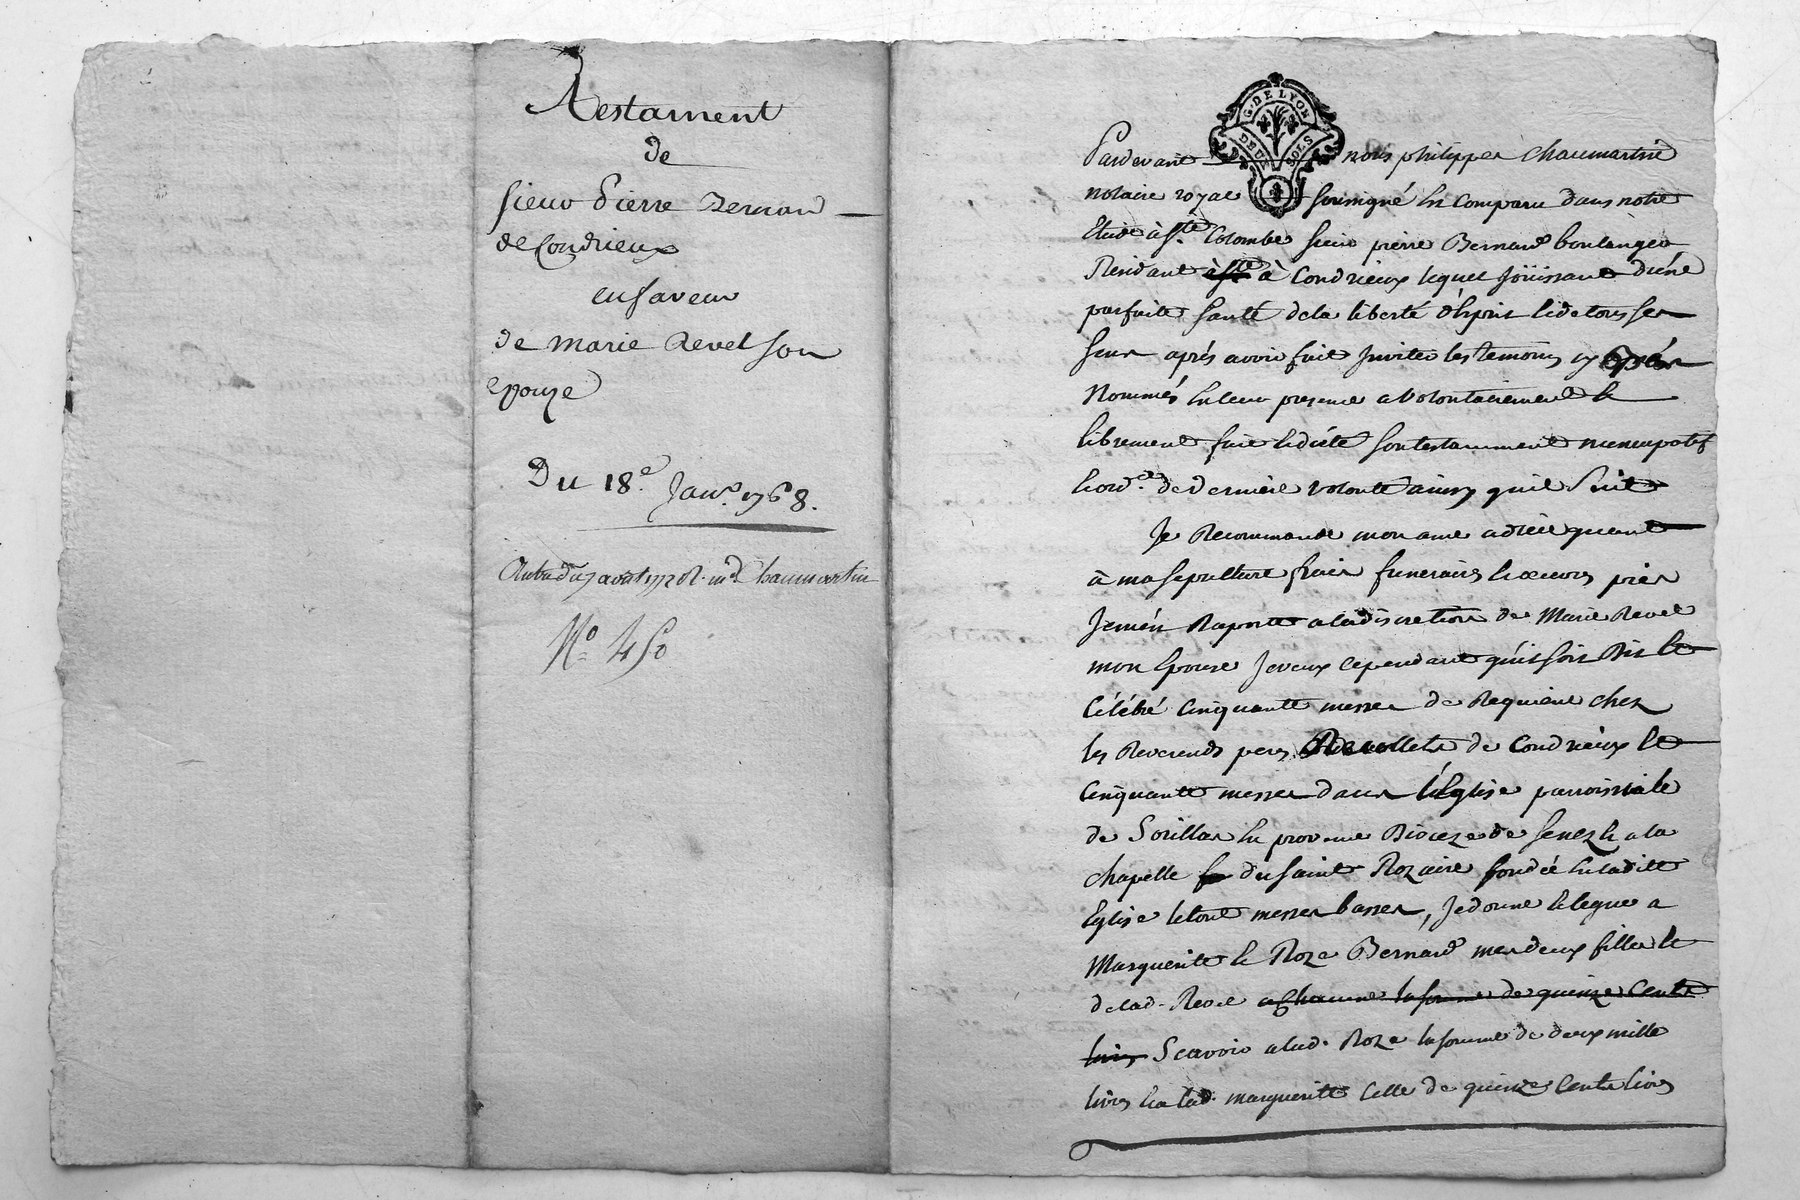 Testament
de
sieur Pierre Bernard
de Condrieux
en faveur
de marie Revel son
epouze
Du 18e. Janr. 1768.
7 avril Chaumartin
No 450
G. DE LYON
DEUX SOLS
Pardevant nous philippes Chaumartin
notaire royal soussigné En Comparu dans notre
Etude à Ste. Colombe sieur pierre Bernard boulanger
Residant à Ste à Condrieux lequel joüissant d'une
parfaite santé dela liberté d'Esprit Et de tous ses
sens après avoir fait Inviter les temoins cy après
Nommés En leur presence a Volontairement Et
librement fait Et dicté son testamment nuncupatif
Et ord.ce de Derniere volonté ainsy qu'il suit
Je Recommande mon ame a dieu quant
à ma sepulture frais funeraires Et œuvres pies
Je m'én Raporte a la discretion de Marie Revel
mon Epouse Je veux cependant qu'il soit Dit Et
Célébré Cinquante messes de Requiem chez
les Reverends peres Recollets de Condrieux Et
Cinquante messes dans l'Eglise parroissiale
de Sorillas En provence Dioceze de Senez Et a la
chapelle du saint Rozaire fondée En ladite
Eglise le tout messes basses, Je donne Et legue a
Marguerite Et Roze Bernard mes deux filles Et
de lad. Revel a Chacune la somme de quinze Cents
livres Scavoir a lad. Roze la somme de deux mille
livres Et a lad. marguerite Celle de quinze Cents livres